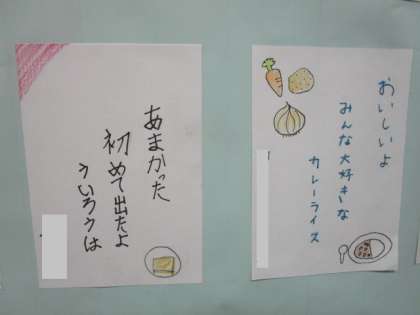 あまかった
初めて出たよ
ういろうは
おいしいよ
みんな大好きな
カレーライス